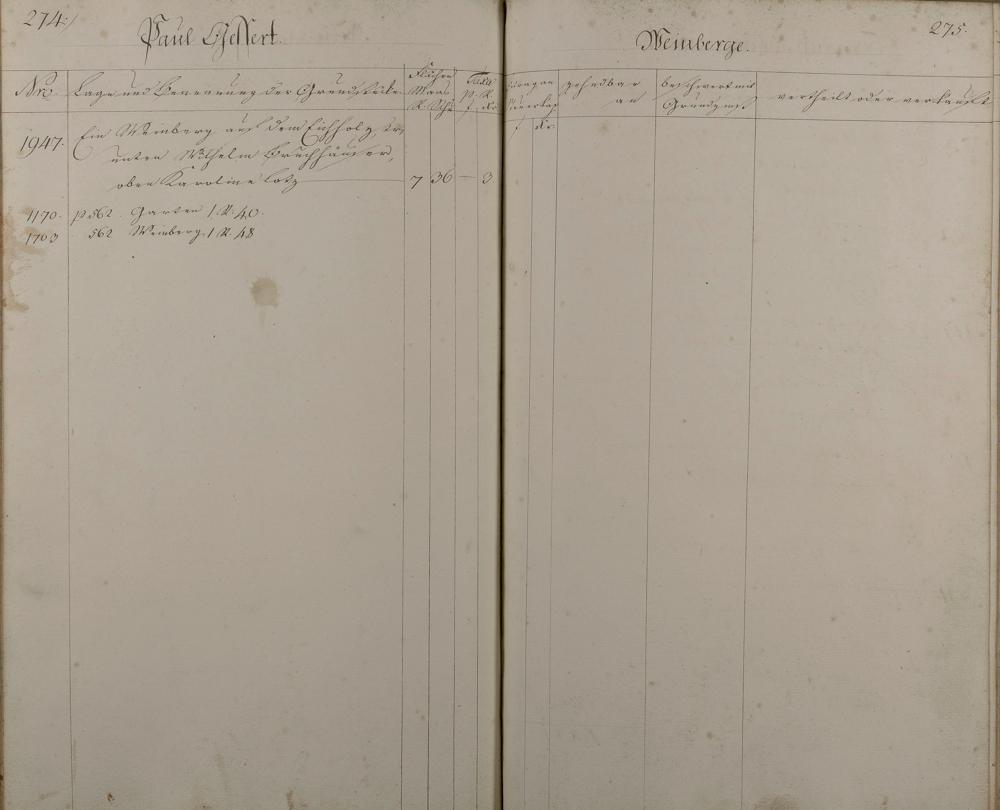 274.
Paul Geffert.
Weinberge.
275.
Nro. Lage und Benennung der Grundstücke
Flächen
Maas
R. Sch.
Taxe
p. R.
f. Kr.
f Kr.
zehndbar
an
beschwert mit
Grundzins
vertheilt oder verkauft
1947. Ein Weinberg auf dem Eichholz
unten Wilhelm Bruchhäuser,
oben Karoline Lotz 7 36 — 3
1170. p 562. Garten 1 R. 40.
1703 562 Weinberg 1 R. 48